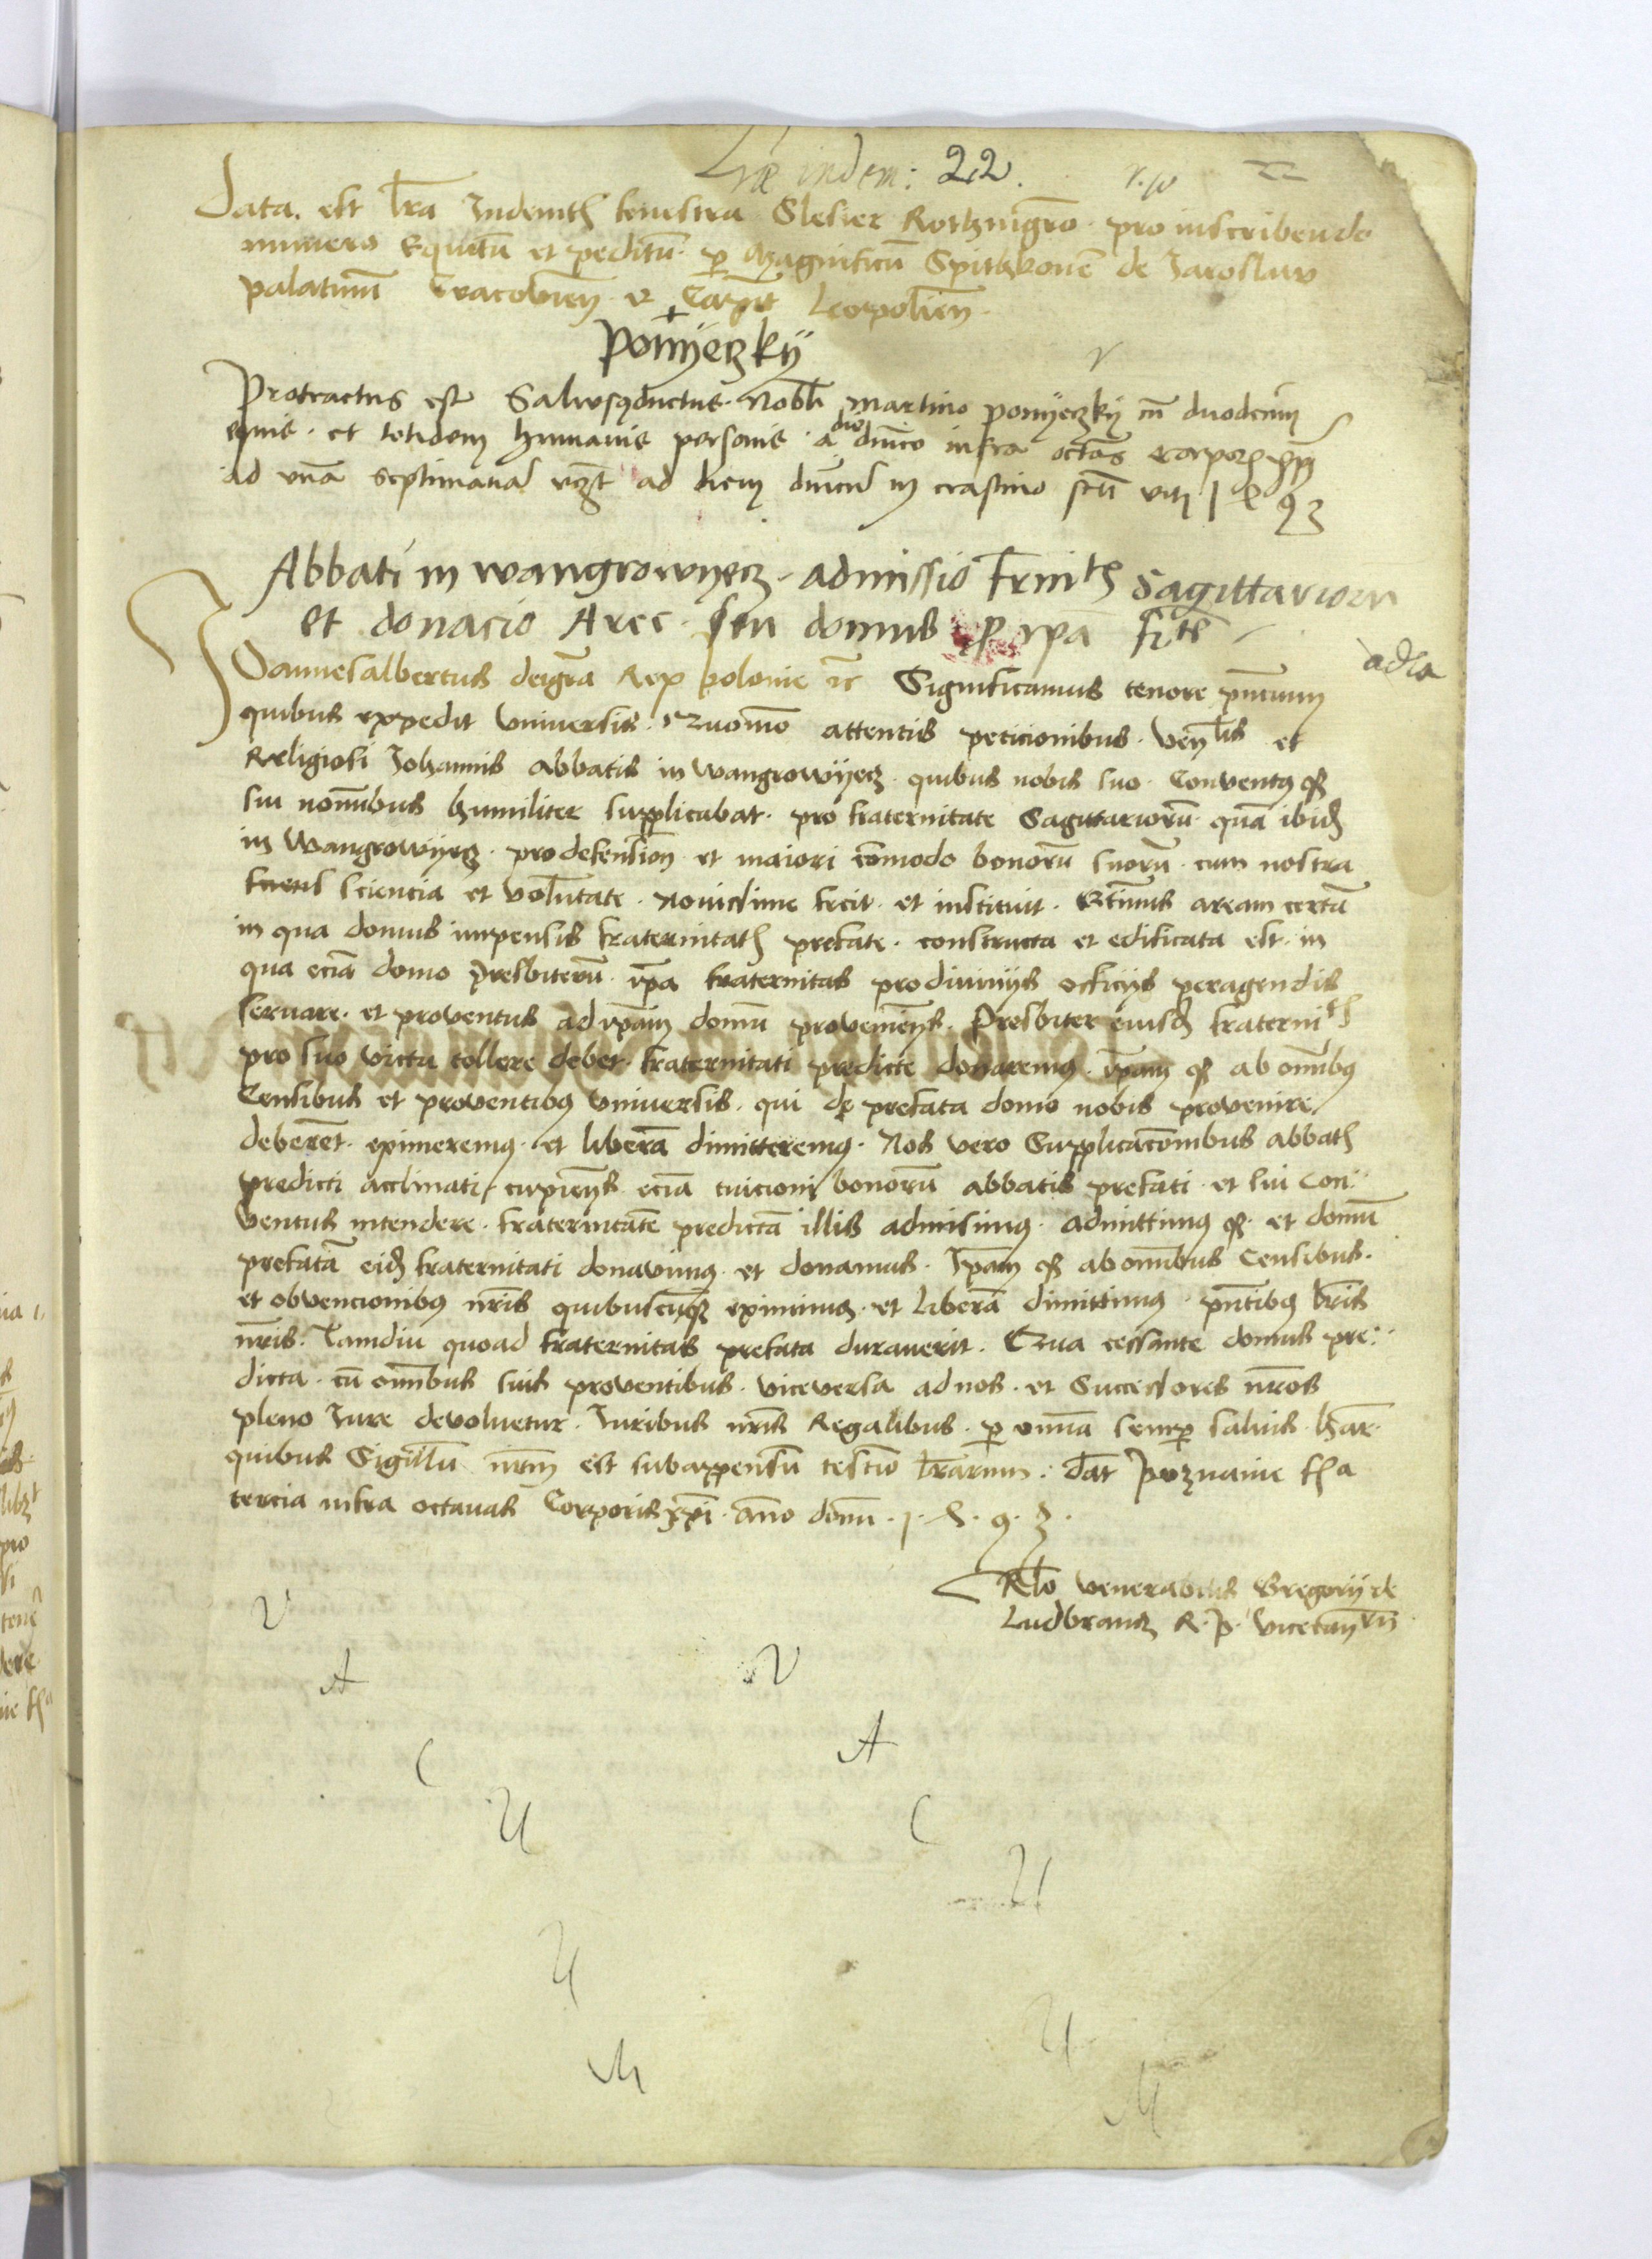 Lre indem: 22. 22
Data. est lra Indemth fenestra Slesier Rothmgro pro inscribendo
numero Equitu et peditu p Magnificu Spithkone de Jaroslaw
palatinu Cracovien et Capit Leopolien
Ponyeczky
Protractus est Salvusqductus Nobli Martino ponyeczky cu duodecim
equis et totidem humanis personis a die dnico infra octas corporis xpi
ad vna septimana ad diem dnicu in crastino scti viti 1 8 93
Abbati in wangrowyecz admissio frnitis Sagittariorum
et donacio Aree seu domus p ipa fite
Joannesalbertus deigra Rex polonie rc Significamus tenore pncium
quibus expedit Universis Quomo attentis peticionibus venlis et
Religiosi Johannis abbatis in Wangrowyecz quibus nobis suo Conventq q
sui nominibus humiliter supplicabat pro fraternitate Sagittarioru qua ibid
in Wangrowyecz pro defension et maiori comodo bonoru suoru cum nostra
sciencia et voluntate Novissime fecit et instituit aream certa
in qua domus impensis fraternitatis prefate constructa et edificata est in
qua ecia domo Presbiteru ipa fraternitas pro divinys officys peragendis
servare et proventus ad ipam domu provenienys Presbiter eiusd fraternitis
pro suo victu tollere debet fraternitati predicte donaremq ipam q ab omibq
Censibus et proventibq Universis qui de prefata domo nobis provenire
deberet eximeremq et libera dimitteremq Nos vero Supplicacoinibus abbatis
predicti acclinati cupienys ecia tuicioni bonoru abbatis prefati et sui Con
ventus intendere fraternitate predicta illis admisimq admittimq q et domu
prefata eid fraternitati donavimq et donamus Ipam q ab omibus Censibus
et obvencionibq nris quibuscuq eximimq et libera dimittimq pntibq lris
nris Tamdiu quoad fraternitas prefata duraverit Qua cessante domus pre
dicta cu omibus suis proventibus viceversa ad nos et Successores nros
pleno Jure devoluetur Juribus nris Regalibus p omia semp salvis har
quibus Sigillu nrm est subappensu testio lrarum dat Poznanie fa
tercia infra octavas Corporis xpi ano domi 1 8 9 3
Rlo venerabilis Gregorij de
Ludbrancz R. P. vicecan
V
A V
C A
U C
U
U
U
M
M